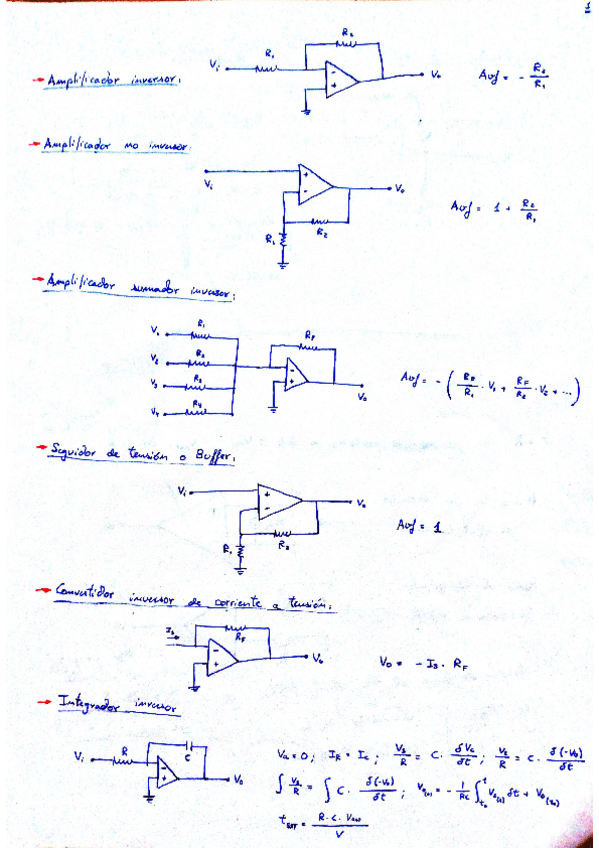 1
→ Amplificador inversor:
Vi R1 R2 - + Vo
Avf = - R2/R1
→ Amplificador no inversor:
Vi + - Vo R1 R2
Avf = 1 + R2/R1
→ Amplificador sumador inversor:
V1 R1
V2 R2
V3 R3
V4 R4
RF - + Vo
Avf = - ( RF/R1 · V1 + RF/R2 · V2 + ... )
→ Seguidor de tensión o Buffer:
Vi + - Vo R1 R2
Avf = 1
→ Convertidor inversor de corriente a tensión:
Is RF - + Vo
Vo = - Is · RF
→ Integrador inversor
Vi R C - + Vo
Va = 0; IR = Ic; Vs/R = C · δVc/δt; Vs/R = C · δ(-Vo)/δt
∫ Vs/R = ∫ C · δ(-Vo)/δt; Vo(t) = - 1/RC ∫ Vs(t) δt + Vo(to)
R · C ·
V